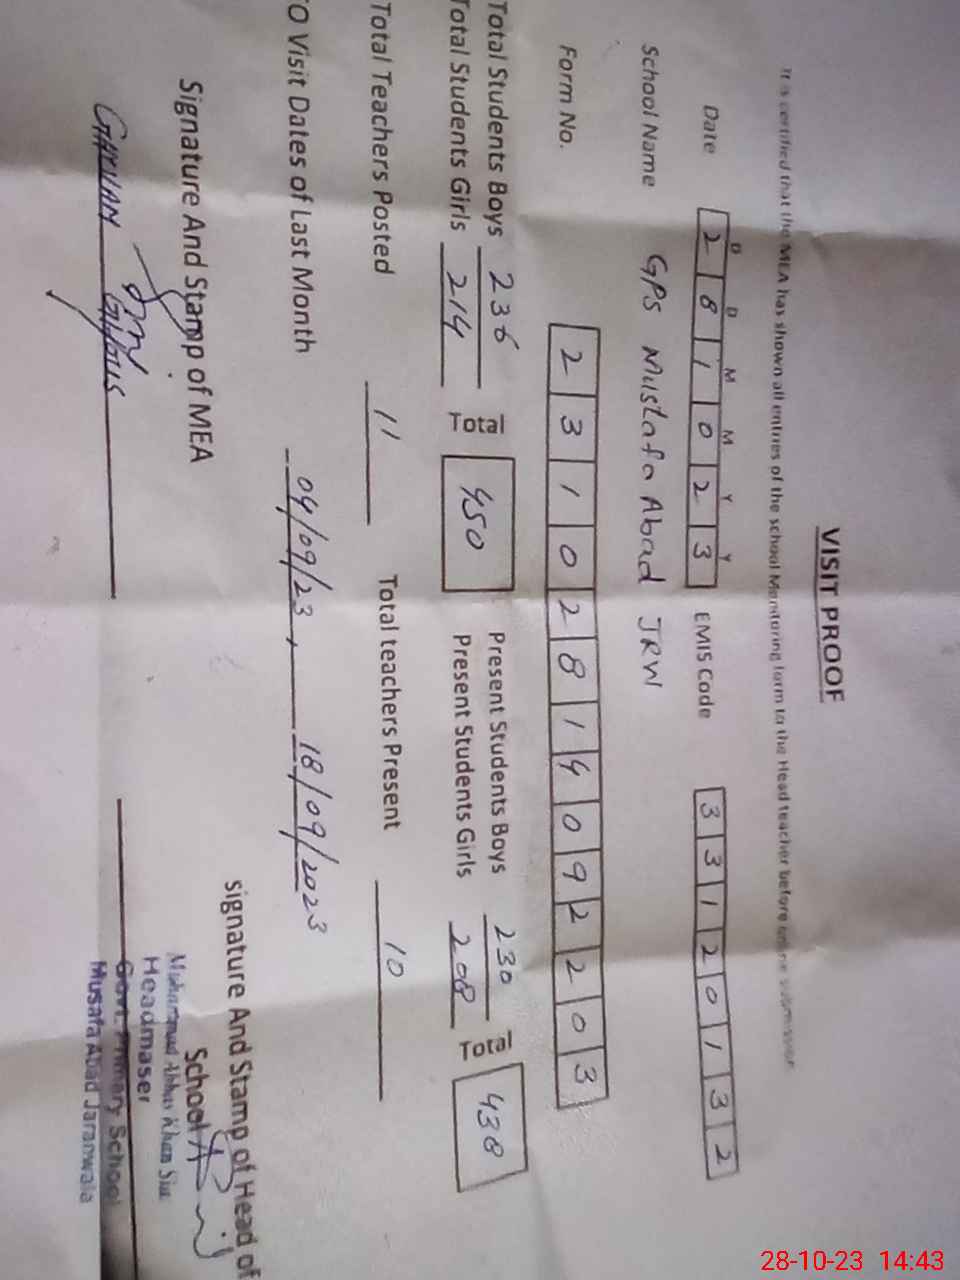 VISIT PROOF
It is certified that the MEA has shown all entries of the school Monitoring form to the Head teacher before online submission
D D M M Y Y
Date 2 8 1 0 2 3 EMIS Code 3 3 1 2 0 1 3 2
School Name GPS Mustafa Abad JRW
Form No. 2 3 1 0 2 8 1 4 0 9 2 2 0 3
Total Students Boys 236 Total 450 Present Students Boys 230 Total 438
Total Students Girls 214 Present Students Girls 208
Total Teachers Posted 11 Total teachers Present 10
TO Visit Dates of Last Month 04/09/23, 18/09/2023
Signature And Stamp of MEA signature And Stamp of Head of
School
Muhammad Abbas Khan
Headmaser
Govt. Primary School
Musafa Abad Jaranwala
28-10-23 14:43